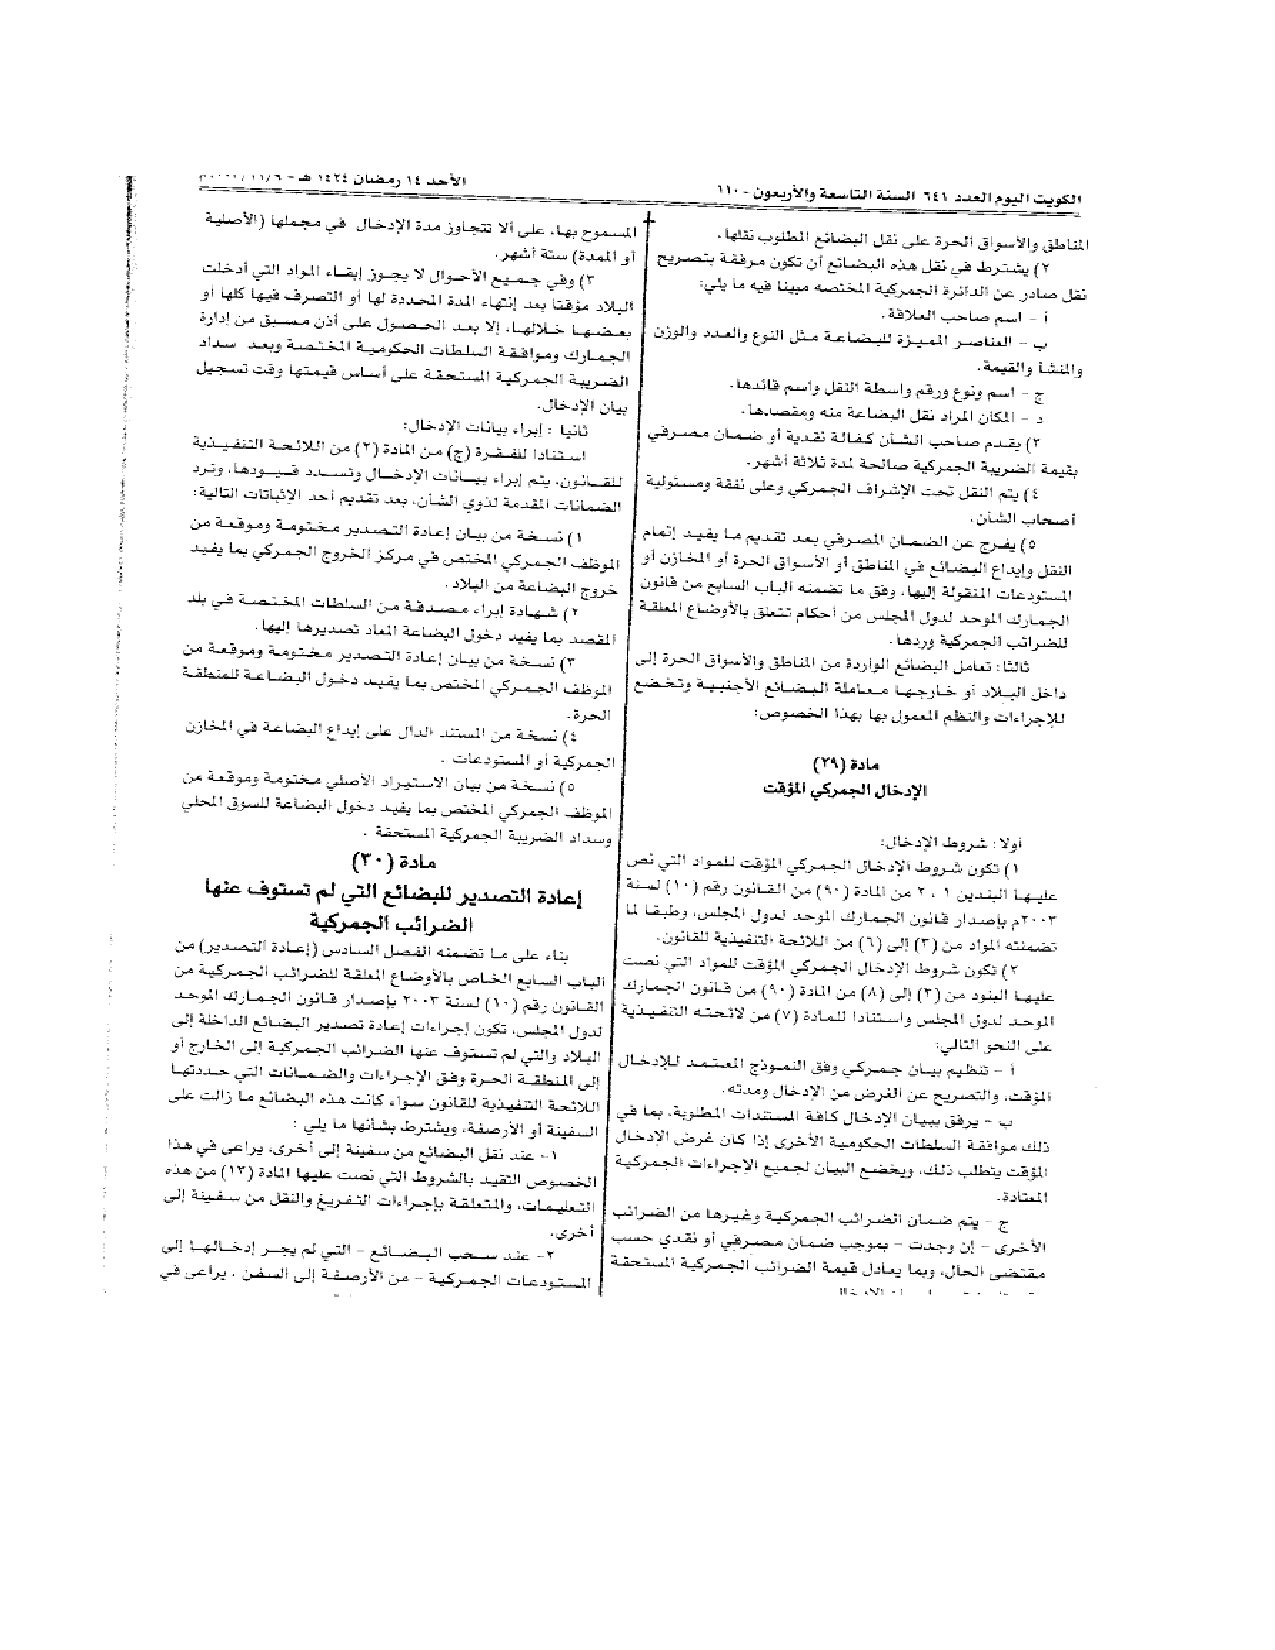 الكويت اليوم العدد ٦٤٦ السنة التاسعة والأربعون - ١١٠
الأحد ١٤ رمضان ١٤٢٤ هـ -
المناطق والأسواق الحرة على نقل البضائع المطلوب نقلها.
٢) يشترط في نقل هذه البضائع أن تكون مرفقة بتصريح
نقل صادر عن الدائرة الجمركية المختصة مبينا فيه ما يلي:
أ - اسم صاحب العلاقة.
ب - العناصر المميزة للبضاعة مثل النوع والعدد والوزن
والمنشأ والقيمة.
ج - اسم ونوع ورقم واسطة النقل وأسم قائدها.
د - المكان المراد نقل البضاعة منه ومقصدها.
٣) يقدم صاحب الشأن كفالة نقدية أو ضمان مصرفي
بقيمة الضريبة الجمركية صالحة لمدة ثلاثة أشهر.
٤) يتم النقل تحت الإشراف الجمركي وعلى نفقة ومسئولية
أصحاب الشأن.
٥) يفرج عن الضمان المصرفي بعد تقديم ما يفيد إتمام
النقل وإيداع البضائع في المناطق أو الأسواق الحرة أو المخازن أو
المستودعات المنقولة إليها، وفق ما تضمنه الباب السابع من قانون
الجمارك الموحد لدول المجلس من أحكام تتعلق بالأوضاع المعلقة
للضرائب الجمركية وردها.
ثالثا: تعامل البضائع الواردة من المناطق والأسواق الحرة إلى
داخل البلاد أو خارجها معاملة البضائع الأجنبية وتخضع
للإجراءات والنظم المعمول بها بهذا الخصوص:
مادة (٢٩)
الإدخال الجمركي المؤقت
أولا: شروط الإدخال:
١) تكون شروط الإدخال الجمركي المؤقت للمواد التي نص
عليها البندين ١ ، ٢ من المادة (٩٠) من القانون رقم (١٠) لسنة
٢٠٠٣م بإصدار قانون الجمارك الموحد لدول المجلس، وطبقا لما
تضمنته المواد من (٣) إلى (٦) من اللائحة التنفيذية للقانون.
٢) تكون شروط الإدخال الجمركي المؤقت للمواد التي نصت
عليها البنود من (٣) إلى (٨) من المادة (٩٠) من قانون الجمارك
الموحد لدول المجلس واستنادا للمادة (٧) من لائحته التنفيذية
على النحو التالي:
أ - تنظيم بيان جمركي وفق النموذج المعتمد للإدخال
المؤقت، والتصريح عن الغرض من الإدخال ومدته.
ب - يرفق ببيان الإدخال كافة المستندات المطلوبة، بما في
ذلك موافقة السلطات الحكومية الأخرى إذا كان غرض الإدخال
المؤقت يتطلب ذلك، ويخضع البيان لجميع الإجراءات الجمركية
المعتادة.
ج - يتم ضمان الضرائب الجمركية وغيرها من الضرائب
الأخرى - إن وجدت - بموجب ضمان مصرفي أو نقدي حسب
مقتضى الحال، وبما يعادل قيمة الضرائب الجمركية المستحقة
المسموح بها، على ألا تتجاوز مدة الإدخال في مجملها (الأصلية
أو الممددة) ستة أشهر.
٣) وفي جميع الأحوال لا يجوز إبقاء المواد التي أدخلت
البلاد مؤقتا بعد إنتهاء المدة المحددة لها أو التصرف فيها كلها أو
بعضها خلالها، إلا بعد الحصول على أذن مسبق من إدارة
الجمارك وموافقة السلطات الحكومية المختصة وبعد سداد
الضريبة الجمركية المستحقة على أساس قيمتها وقت تسجيل
بيان الإدخال.
ثانيا : إبراء بيانات الإدخال:
استنادا للفقرة (ج) من المادة (٢) من اللائحة التنفيذية
للقانون، يتم إبراء بيانات الإدخال وتسدد قيودها، وترد
الضمانات المقدمة لذوي الشأن، بعد تقديم أحد الاثباتات التالية:
١) نسخة من بيان إعادة التصدير مختومة وموقعة من
الموظف الجمركي المختص في مركز الخروج الجمركي بما يفيد
خروج البضاعة من البلاد.
٢) شهادة إبراء مصدقة من السلطات المختصة في بلد
المقصد بما يفيد دخول البضاعة المعاد تصديرها إليها.
٣) نسخة من بيان إعادة التصدير مختومة وموقعة من
الموظف الجمركي المختص بما يفيد دخول البضاعة للمنطقة
الحرة.
٤) نسخة من المستند الدال على إيداع البضاعة في المخازن
الجمركية أو المستودعات .
٥) نسخة من بيان الاستيراد الأصلي مختومة وموقعة من
الموظف الجمركي المختص بما يفيد دخول البضاعة للسوق المحلي
وسداد الضريبة الجمركية المستحقة .
مادة (٣٠)
إعادة التصدير للبضائع التي لم تستوف عنها
الضرائب الجمركية
بناء على ما تضمنه الفصل السادس (إعادة التصدير) من
الباب السابع الخاص بالأوضاع المعلقة للضرائب الجمركية من
القانون رقم (١٠) لسنة ٢٠٠٣ بإصدار قانون الجمارك الموحد
لدول المجلس، تكون إجراءات إعادة تصدير البضائع الداخلة إلى
البلاد والتي لم تستوف عنها الضرائب الجمركية إلى الخارج أو
إلى المنطقة الحرة وفق الإجراءات والضمانات التي حددتها
اللائحة التنفيذية للقانون سواء كانت هذه البضائع ما زالت على
السفينة أو الأرصفة، ويشترط بشأنها ما يلي :
١- عند نقل البضائع من سفينة إلى أخرى، يراعى في هذا
الخصوص التقيد بالشروط التي نصت عليها المادة (١٢) من هذه
التعليمات، والمتعلقة بإجراءات التفريغ والنقل من سفينة إلى
أخرى.
٢- عند سحب البضائع - التي لم يجر إدخالها إلى
المستودعات الجمركية - من الأرصفة إلى السفن ، يراعى في